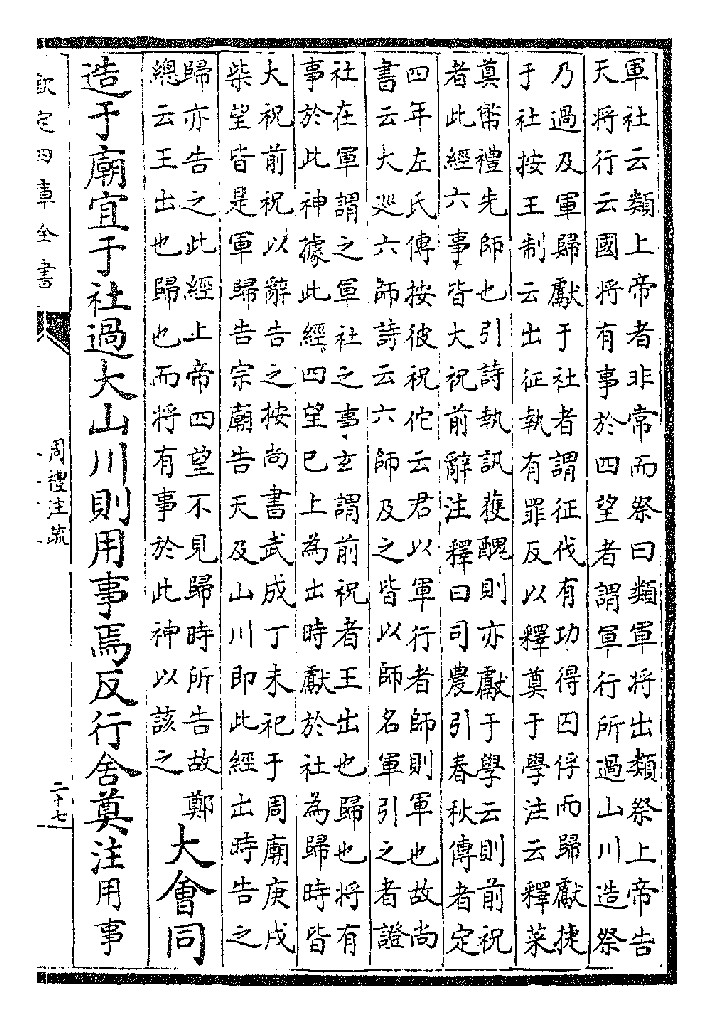 軍社云類上帝者非常而祭曰類軍將出類祭上帝告
天將行云國將有事於四望者謂軍行所過山川造祭
乃過及軍歸獻于社者謂征伐有功得囚俘而歸獻捷
于社按王制云出征執有罪反以釋奠于學注云釋菜
奠幣禮先師也引詩執訊獲醜則亦獻于學云則前祝
者此經六事皆大祝前辭注釋曰司農引春秋傳者定
四年左氏傳按彼祝佗云君以軍行者師則軍也故尚
書云大巡六師詩云六師及之皆以師名軍引之者證
社在軍謂之軍社之事玄謂前祝者王出也歸也將有
事於此神據此經四望已上為出時獻於社為歸時皆
大祝前祝以辭告之按尚書武成丁未祀于周廟庚戌
柴望皆是軍歸告宗廟告天及山川即此經出時告之
歸亦告之此經上帝四望不見歸時所告故鄭
總云王出也歸也而將有事於此神以該之
大會同
造于廟宜于社過大山川則用事焉反行舍奠注用事
欽定四庫全書
周禮注疏
二十七